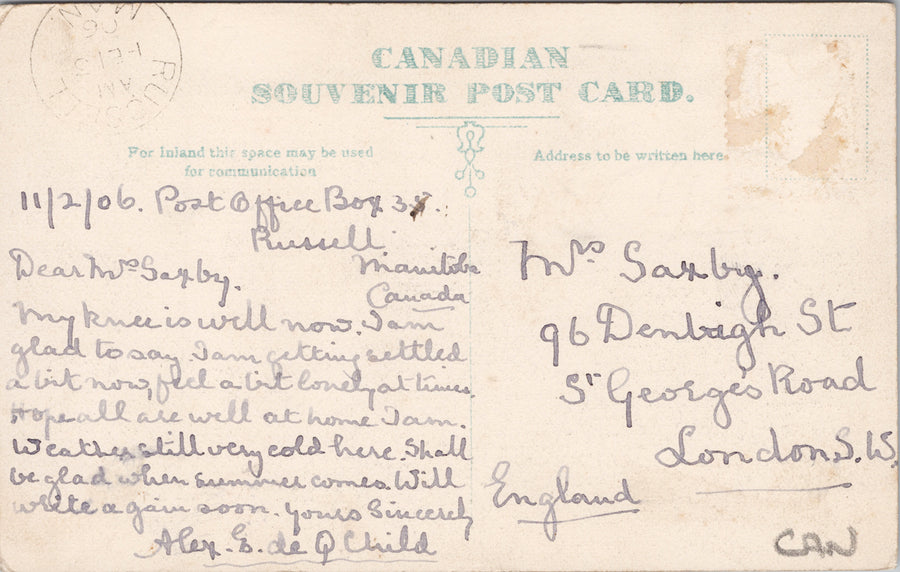 RUSSELL
AM
FE 13
06
MAN.
CANADIAN
SOUVENIR POST CARD.
For Inland this space may be used
for communication
Address to be written here.
11/2/06. Post Office Box 38.
Russell
Manitoba
Canada
Dear Mrs Saxby.
My knee is well now, I am
glad to say I am getting settled
a bit now, feel a bit lonely at times.
Hope all are well at home I am.
Weather still very cold here. Shall
be glad when summer comes. Will
write again soon. Yours Sincerely
Alex. E. de Q Child
Mrs Saxby.
96 Denbigh St
St George's Road
London. S. W.
England
CAN